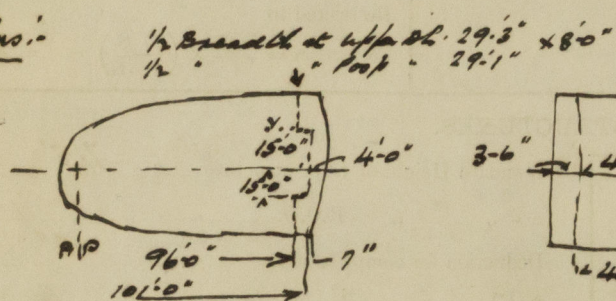 ns:-
1/2 Breadth at upper dk. 29'.3" x 8'-0"
1/2 " " Poop " 29'.1"
15'-0"
4'-0"
3-6"
4
15'-0"
AP
96'-0"
7"
4
101'-0"